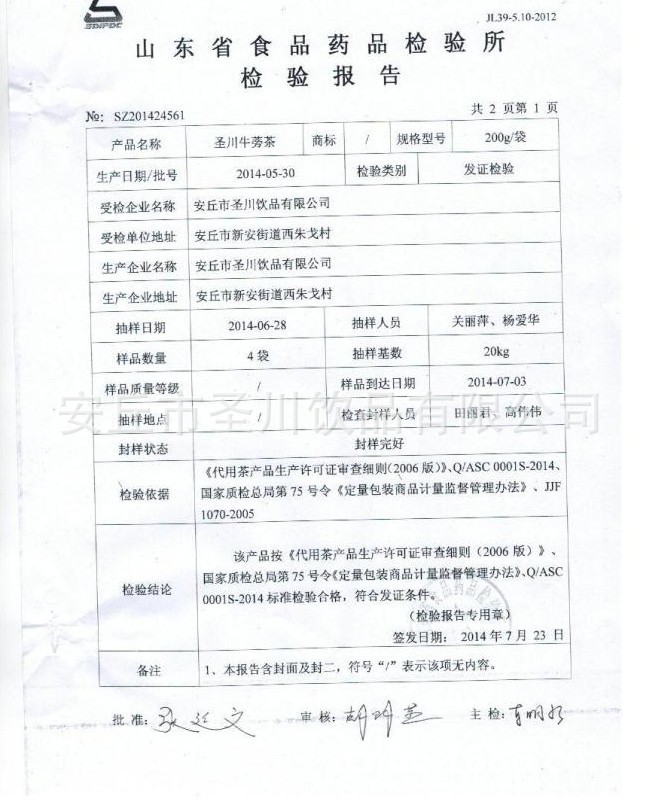 SDIFDC
JL39-5.10-2012
山东省食品药品检验所
检验报告
№: SZ201424561
共 2 页第 1 页
产品名称 圣川牛蒡茶 商标 / 规格型号 200g/袋
生产日期/批号 2014-05-30 检验类别 发证检验
受检企业名称 安丘市圣川饮品有限公司
受检单位地址 安丘市新安街道西朱戈村
生产企业名称 安丘市圣川饮品有限公司
生产企业地址 安丘市新安街道西朱戈村
抽样日期 2014-06-28 抽样人员 关丽萍、杨爱华
样品数量 4 袋 抽样基数 20kg
样品质量等级 / 样品到达日期 2014-07-03
安丘市圣川饮品有限公司
抽样地点 / 检查封样人员 田丽君、高伟伟
封样状态 封样完好
检验依据 《代用茶产品生产许可证审查细则(2006 版)》、Q/ASC 0001S-2014、
国家质检总局第 75 号令《定量包装商品计量监督管理办法》、JJF
1070-2005
检验结论 该产品按《代用茶产品生产许可证审查细则（2006 版）》、
国家质检总局第 75 号令《定量包装商品计量监督管理办法》、Q/ASC
0001S-2014 标准检验合格，符合发证条件。
（检验报告专用章）
签发日期： 2014 年 7 月 23 日
备注 1、本报告含封面及封二，符号“/”表示该项无内容。
批准: 审核: 主检: